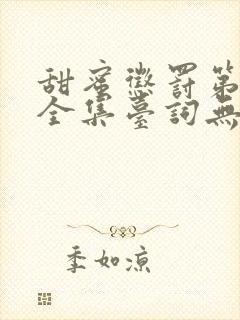 甜蜜懲罰第
全集臺詞無
季如涼